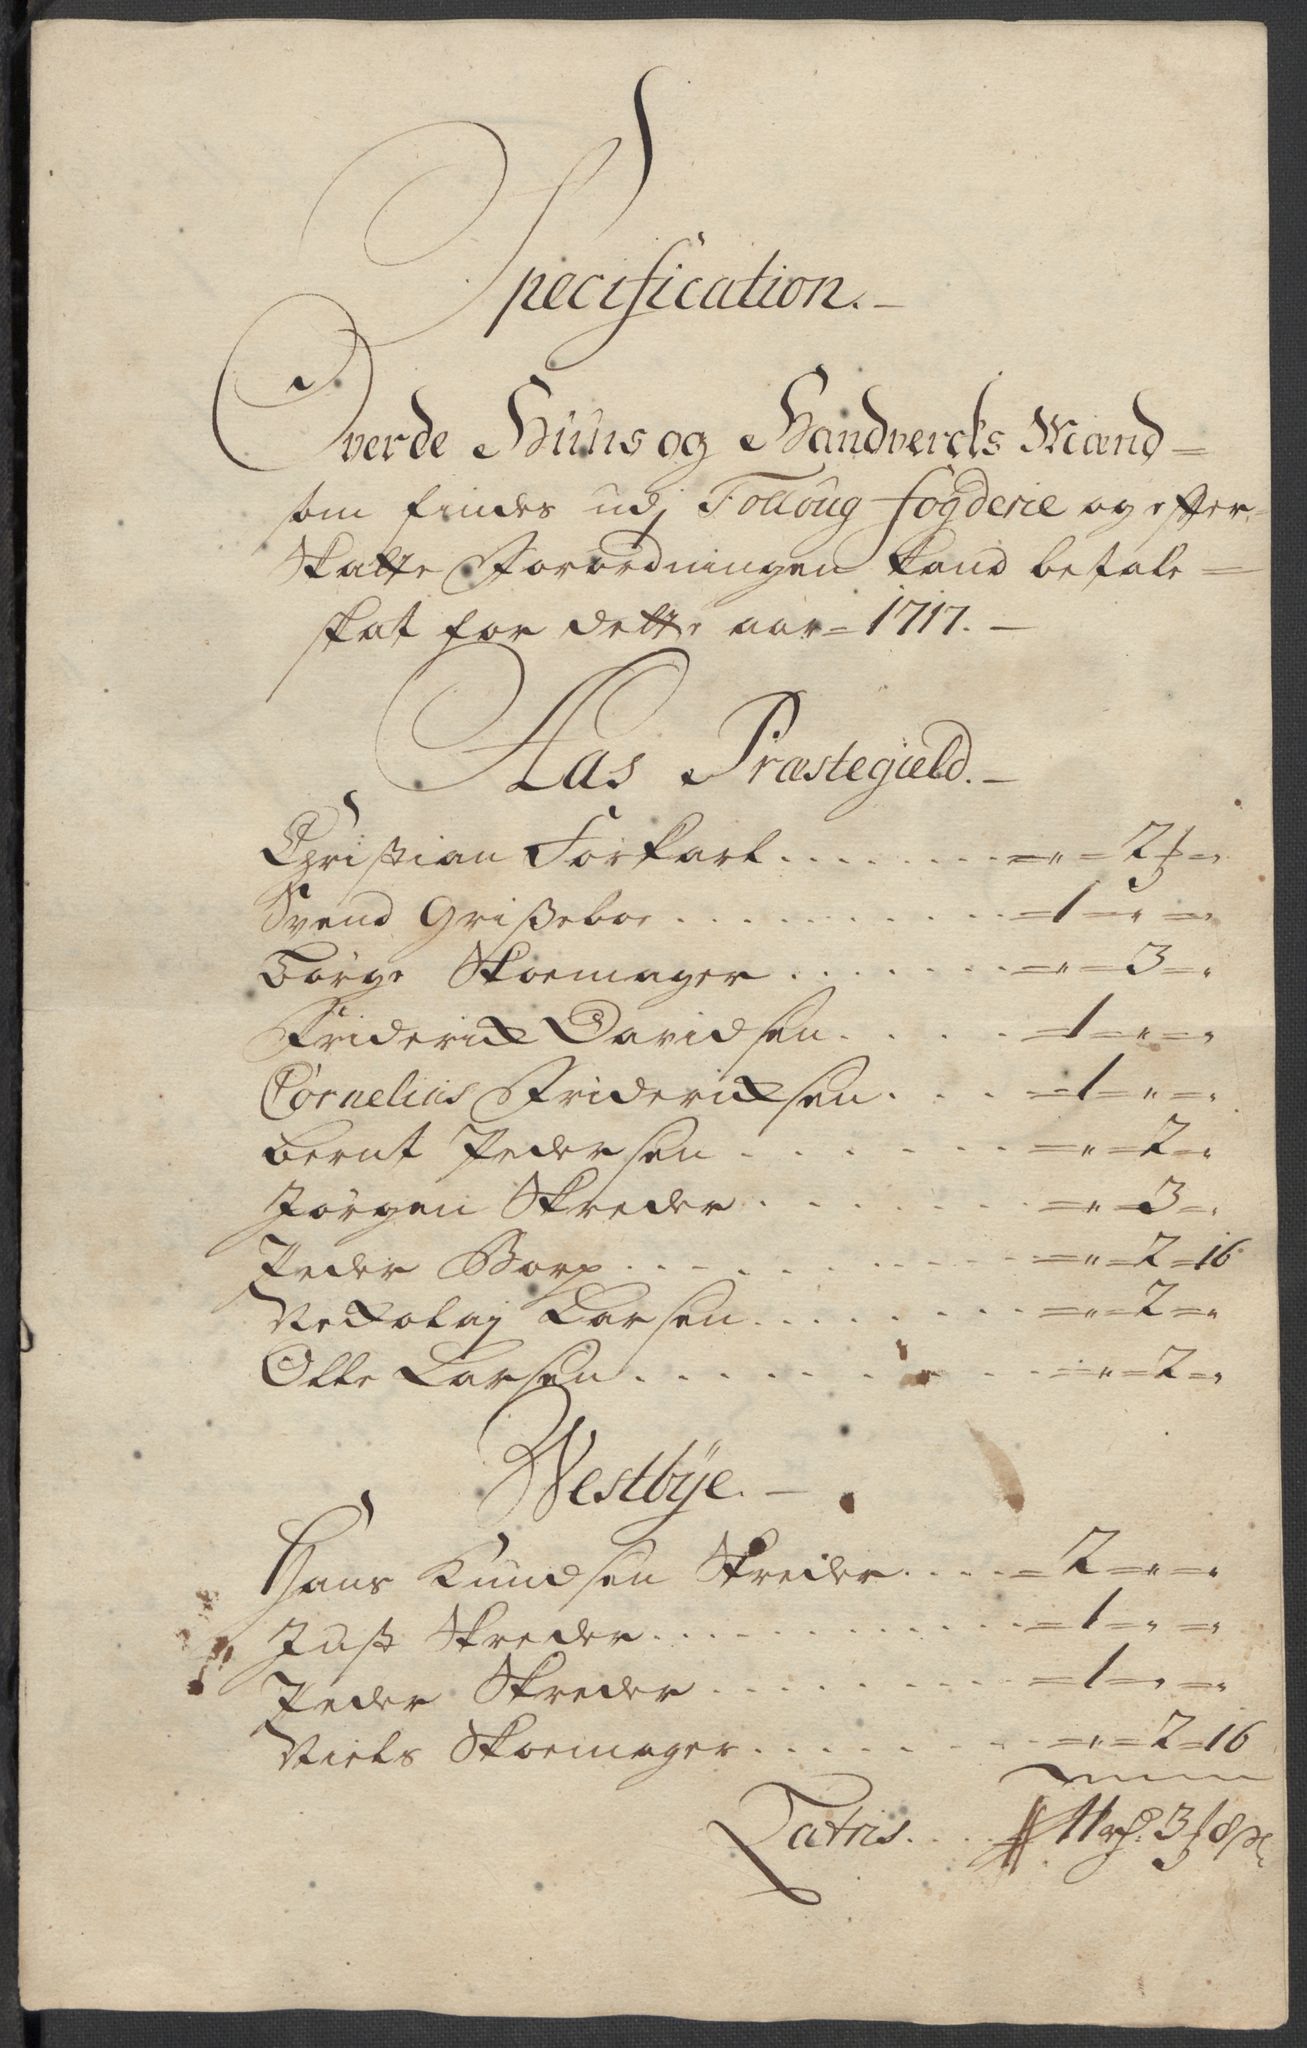 Specification.
Over de Huus og Handvercks Mænd
som findes udj Folloug fogderie og effter
Skatte Forordningen kand betale
skat for dette aar 1717.
Aas Præstegield.
Christian Forkarl . . . . " 2 ƒ "
Svend Grißeboe . . . . 1 " "
Børge Skoemager . . . . " 3 "
Friderich Davidsen . . . . 1 " "
Cornelius Friderichsen . . . . 1 " "
Bernt Pedersen . . . . " 2 "
Jørgen Skreder . . . . " 3 "
Peder Borg . . . . " 2 16
Nickolaj Larsen . . . . " 2 "
Olle Larsen . . . . " 2 "
Westbÿe.
Hans Knudsen Skreder . . . . 2 " "
Just Skreder . . . . 1 " "
Peder Skreder . . . . 1 " "
Niels Skoemager . . . . " 2 16
Latris . . . . 11 rd 3 ƒ 8 s